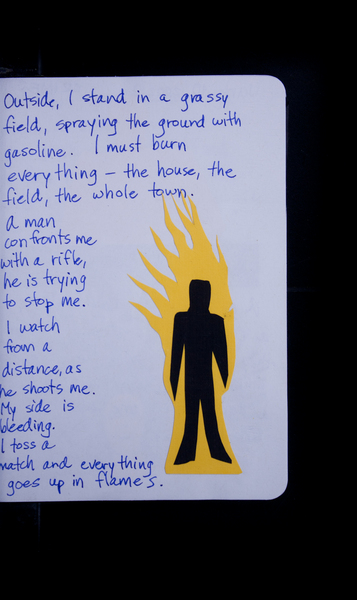 Outside, I stand in a grassy
field, spraying the ground with
gasoline. I must burn
everything – the house, the
field, the whole town.
A man
confronts me
with a rifle,
he is trying
to stop me.
I watch
from a
distance, as
he shoots me.
My side is
bleeding.
I toss a
match and everything
goes up in flames.